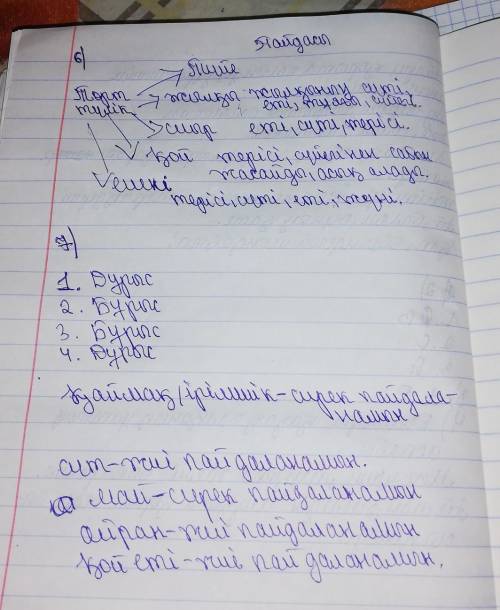 Пайдасы
6)
Түйе
Төрт жылқы жылқының сүті,
түлік еті, сүйегі.
сиыр еті, сүті, терісі.
Қой терісі, сүйегінен сабын
жасайды, асық алады.
ешкі
терісі, сүті, еті, жүні.
7)
1. Дұрыс
2. Бұрыс
3. Бұрыс
4. Дұрыс
қаймақ/ірімшік-сирек пайдала-
намын
сүт-жиі пайдаланамын.
май-сирек пайдаланамын
айран-жиі пайдаланамын
Қой еті-жиі пайдаланамын.